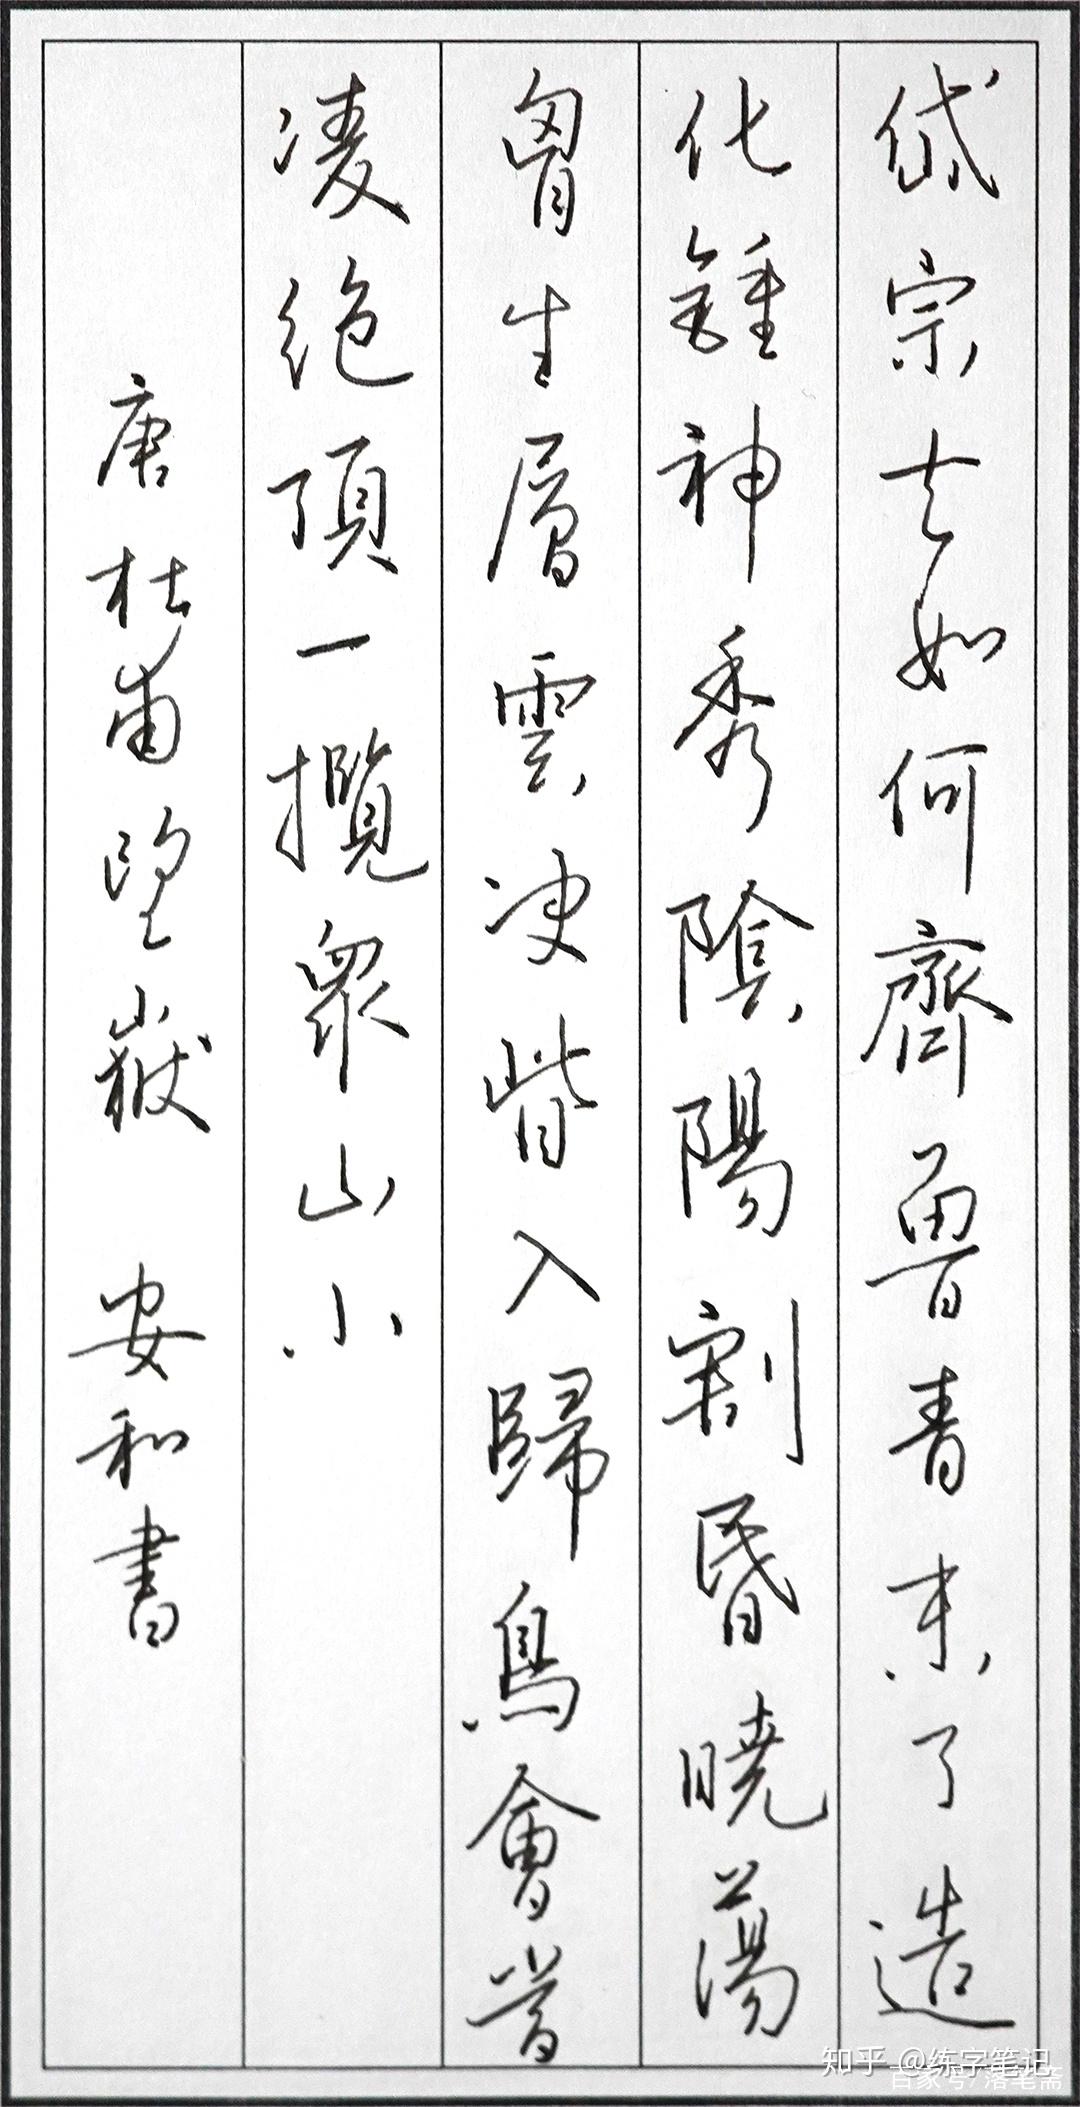 岱宗夫如何齊魯青未了造
化鍾神秀陰陽割昬曉蕩
胷生層雲决眥入歸鳥會當
凌絶頂一攬衆山小
唐杜甫望嶽 安和書
知乎 @练字笔记
百家号/落笔斋